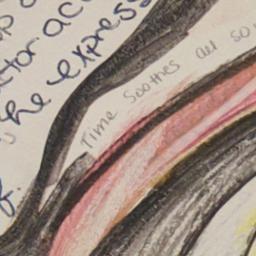 tor ac
he express
Time Soothes all so